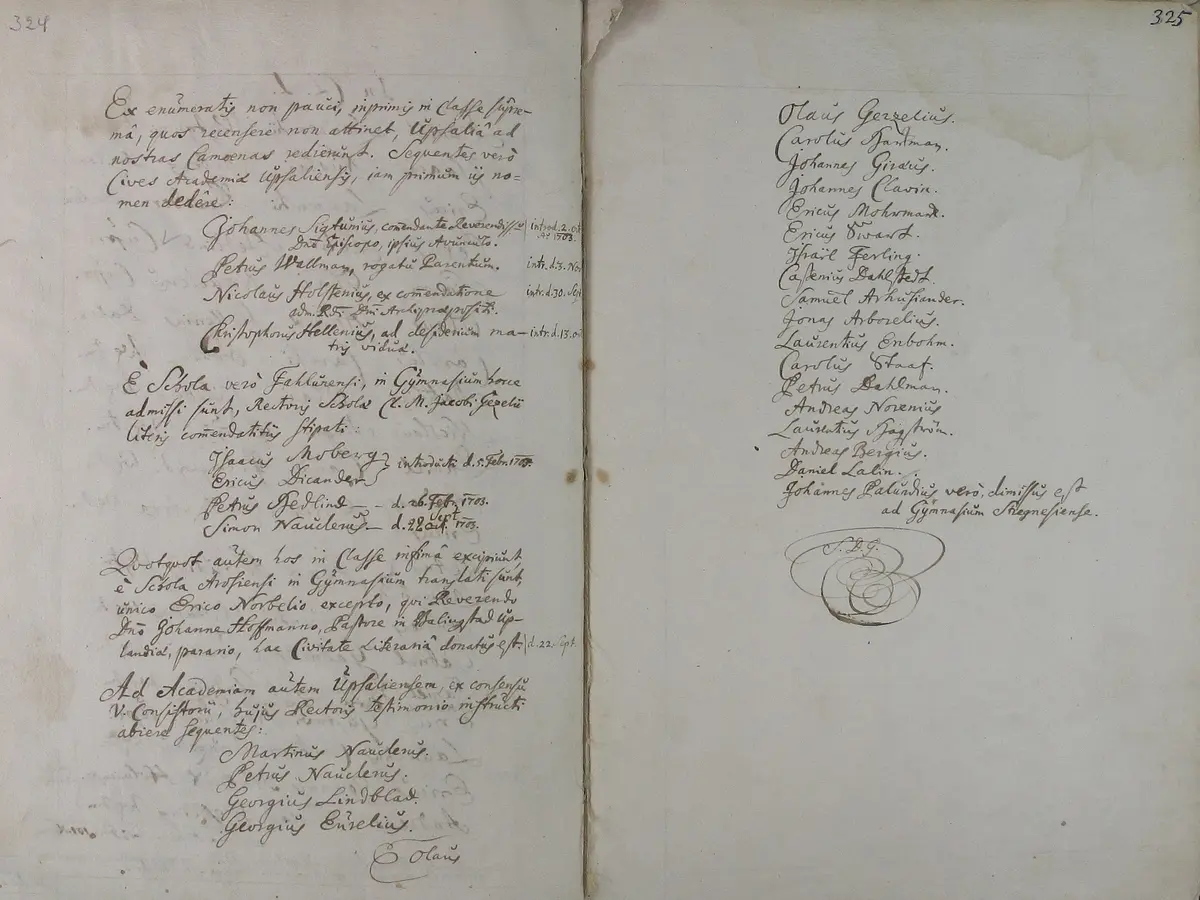 324
Ex enumeratis non pauci, inprimis in Classe supre-
mâ, quos recensere non attinet, Upsaliâ ad
nostras Camoenas redierunt. Sequentes verò
Cives Academiæ Upsaliensis, iam primum iis no-
men dedêre:
Johannes Sigtunius, comendante Reverendissimo | introd. 2.
Dnō Episcopo, ipsius Avunculo. Aō 1703.
Petrus Wallman, rogatu Parentum. intr. d. 5. Nov
Nicolaus Holstenius, ex comendatione intr. d. 30. Sept
adm. Rdi Dni Archipræpositi.
Christophorus Hellenius, ad desiderium ma- intr. d. 13.
tris viduæ.
È Schola verò Fahlunensi, in Gymnasium hocce
admissi sunt, Rectoris Scholæ Cl. M. Jacobi Gezelii
literis comendatitiis stipati:
Isaacus Moberg } introducti d. 5. Febr. 1703.
Ericus Dicander }
Petrus Hedlind — d. 26. Febr. 1703.
Simon Nauclerus — d. 22 1703.
Quotquot autem hos in Classe infimâ excipiunt,
è Schola Arosiensi in Gymnasium translati sunt,
unico Erico Norbelio excepto, qui Reverendo
Dnō Johanne Hoffmanno, Pastore in Up-
landia, parario, hac Civitate Literariâ donatus est. | d. 22. Sept.
Ad Academiam autem Upsaliensem, ex consensu
V. Consistorii, hujus Rectoris testimonio instructi
abiere sequentes:
Martinus Nauclerus.
Petrus Nauclerus.
Georgius Lindblad.
Georgius Eurelius.
Olaus
325
Olaus Gerzelius.
Carolus Hartman.
Johannes Giræus.
Johannes Clavin.
Ericus Mohrman.
Ericus Swart.
Israil Ferling.
Cassenius Dahlstedt.
Samuel Arhusiander.
Jonas Arborelius.
Laurentius Enbohm.
Carolus Staaf.
Petrus Dahlman.
Andreas Norenius
Laurentius Hagström.
Andreas Bergius.
Daniel Lalin.
Johannes Paludius verò, dimissus est
ad Gymnasium Stregnesiense.
S. D. G.